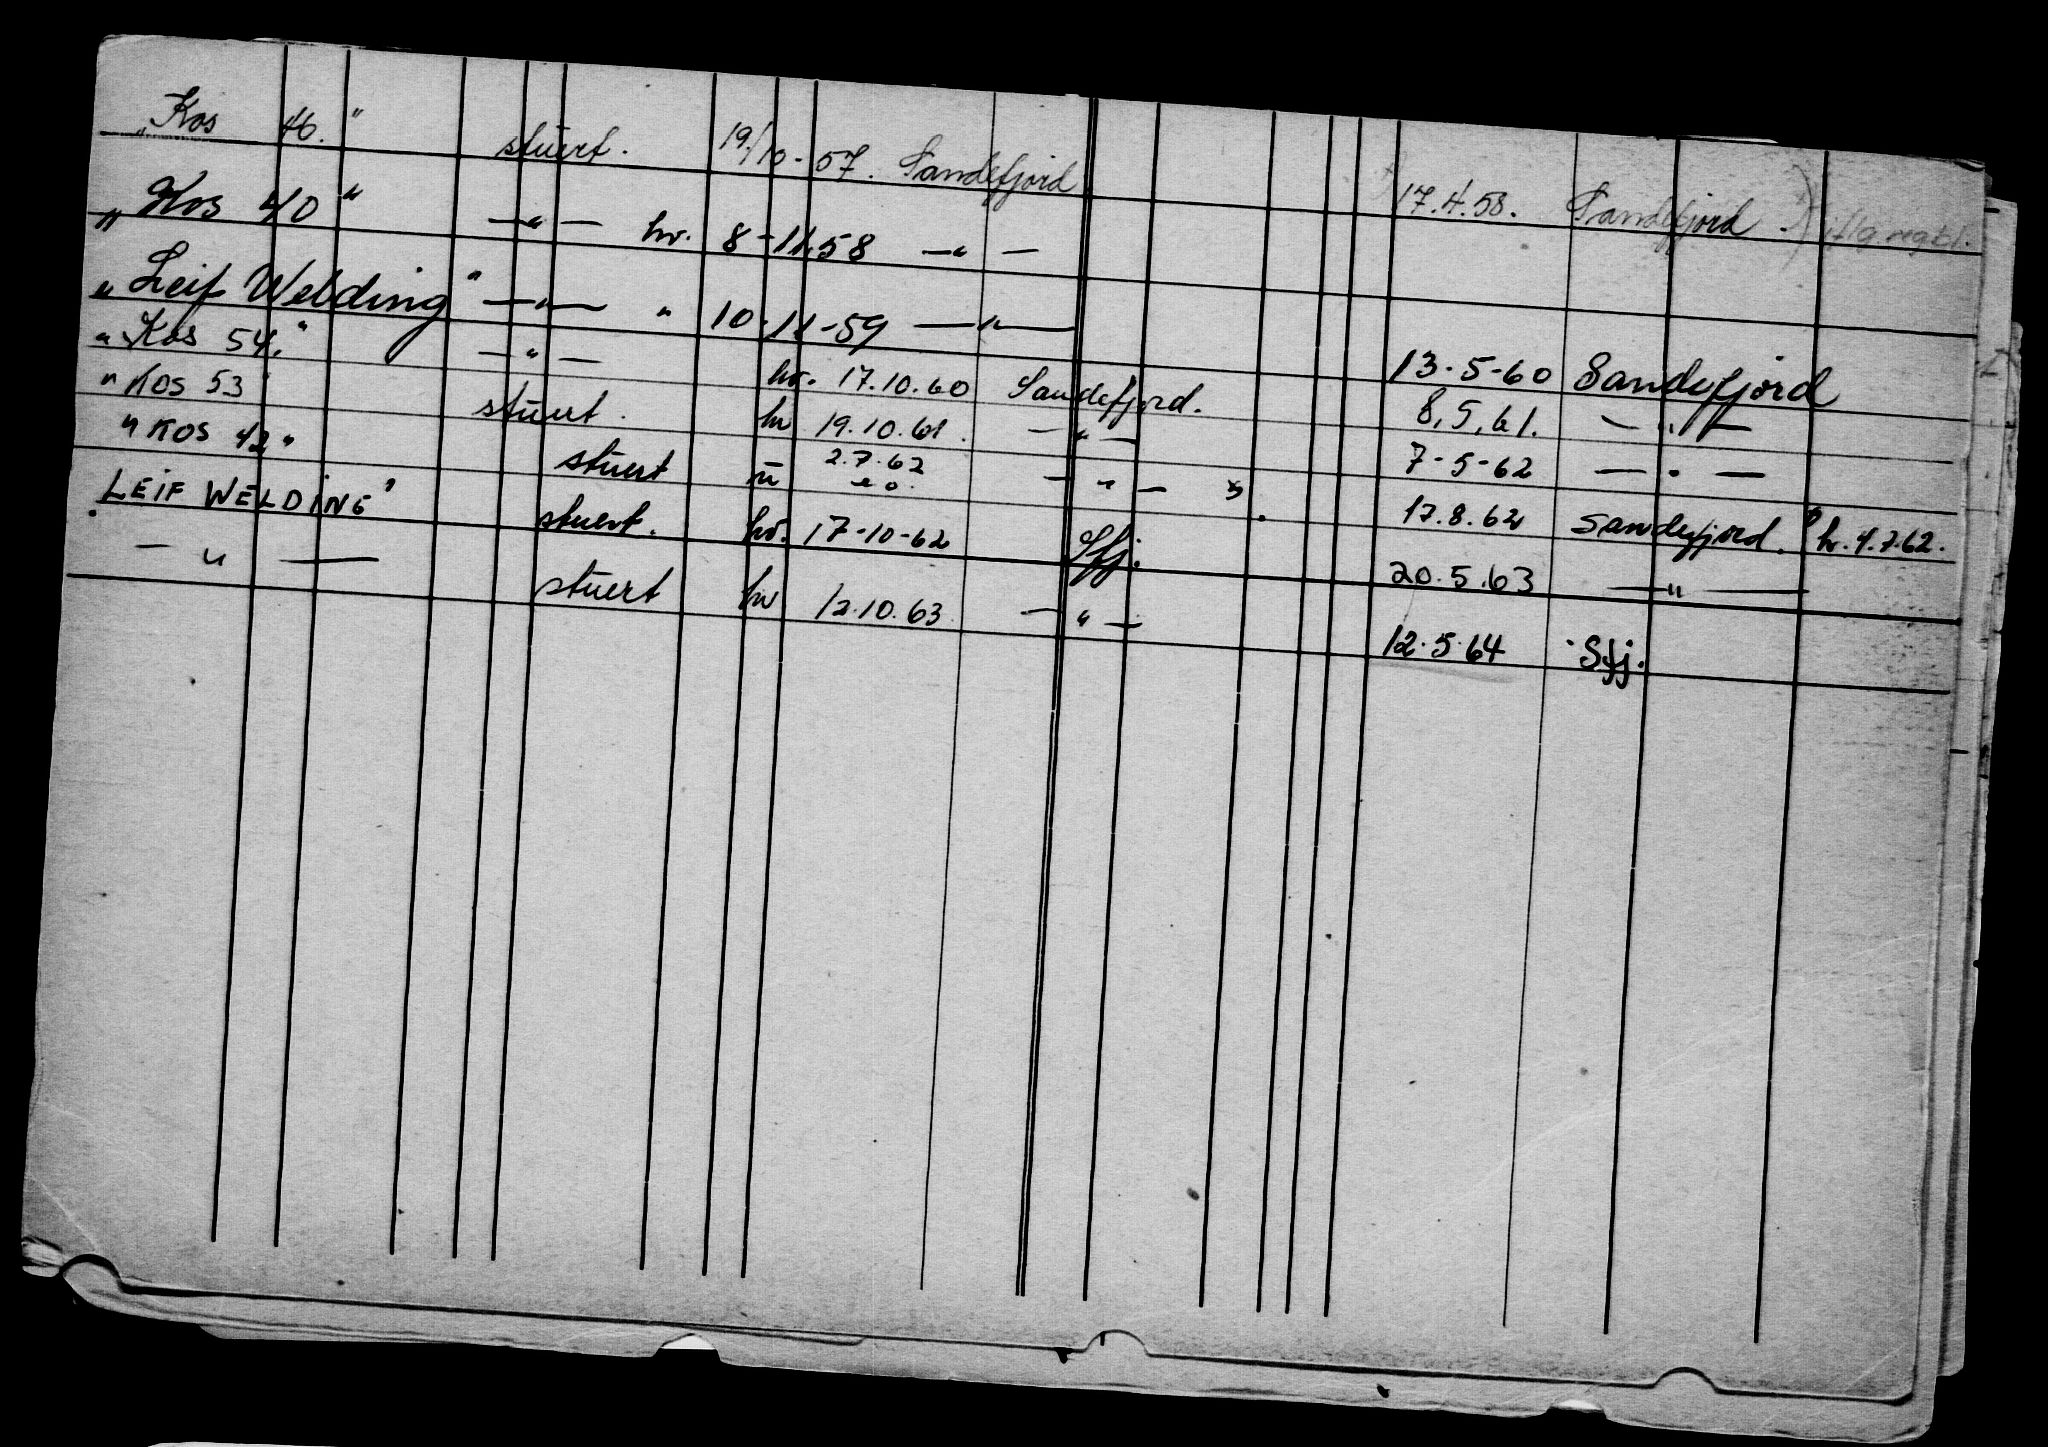 „Kos 46." stuert. 19/10-57. Sandefjord 17.4.58. Sandefjord.
„Kos 40" —"— hv. 8-11.58 —"—
„Leif Welding" —"— " 10-11-59 —"— 13-5-60 Sandefjord
„Kos 54." —"— hv. 17.10.60 Sandefjord. 8.5.61. —"—
"KOS 53" stuert. hv 19.10.61. —"— 7-5-62 —"—
"KOS 42" stuert 2.7.62 —"— 17.8.62 Sandefjord. hv. 4.7.62.
"LEIF WELDING" stuert. hv. 17-10-62 Sfj. 20.5.63 —"—
—"— stuert hv 12.10.63. —"— 12.5.64 Sfj.